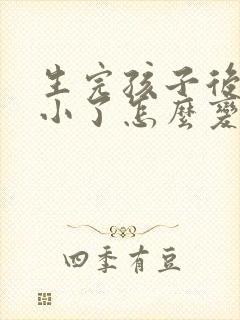 生完孩子後
小了怎麼變
四季有豆